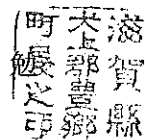 滋賀縣
犬上郡豊郷
町長之印